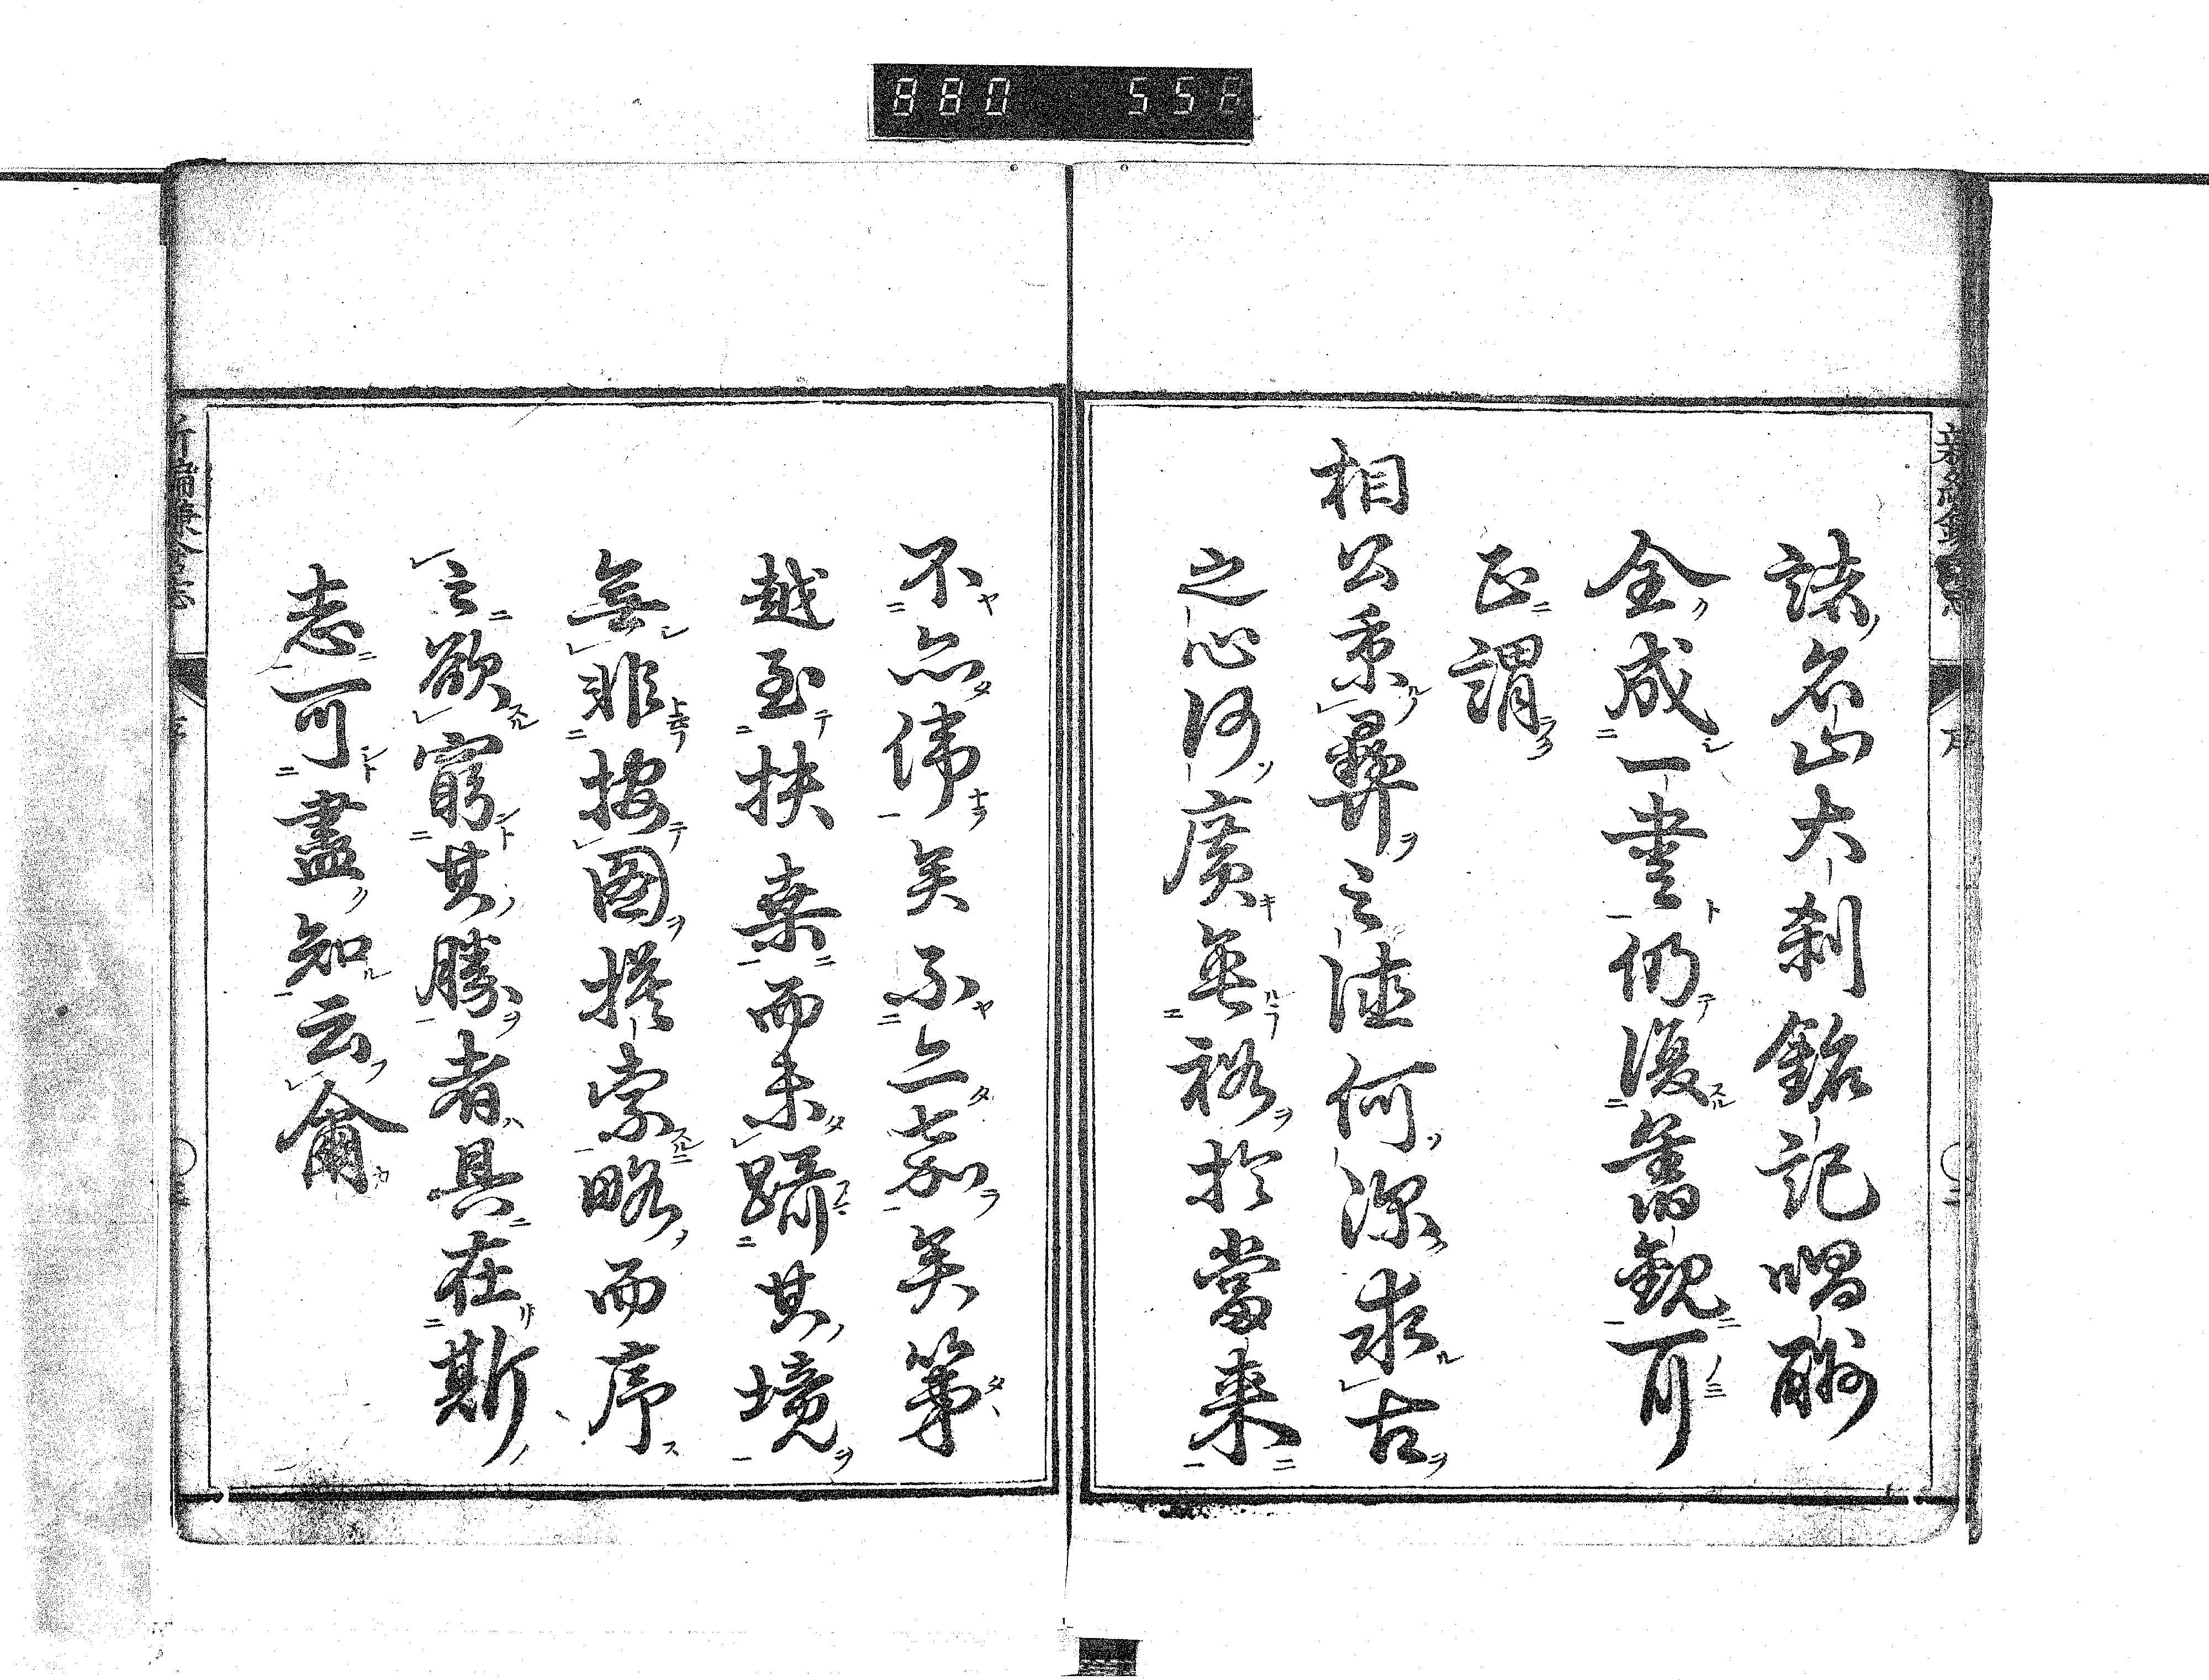 諸名山大刹銘記唱酬
全成一書仍復舊觀可
正謂
相公秉彝之德何深求古
之心何廣無裕於當來
不亦偉矣不亦嘉矣第
越至扶桑而未躡其境
無非按圖摸索略而序
之欲窮其勝者具在斯
志可盡知云爾
880 55